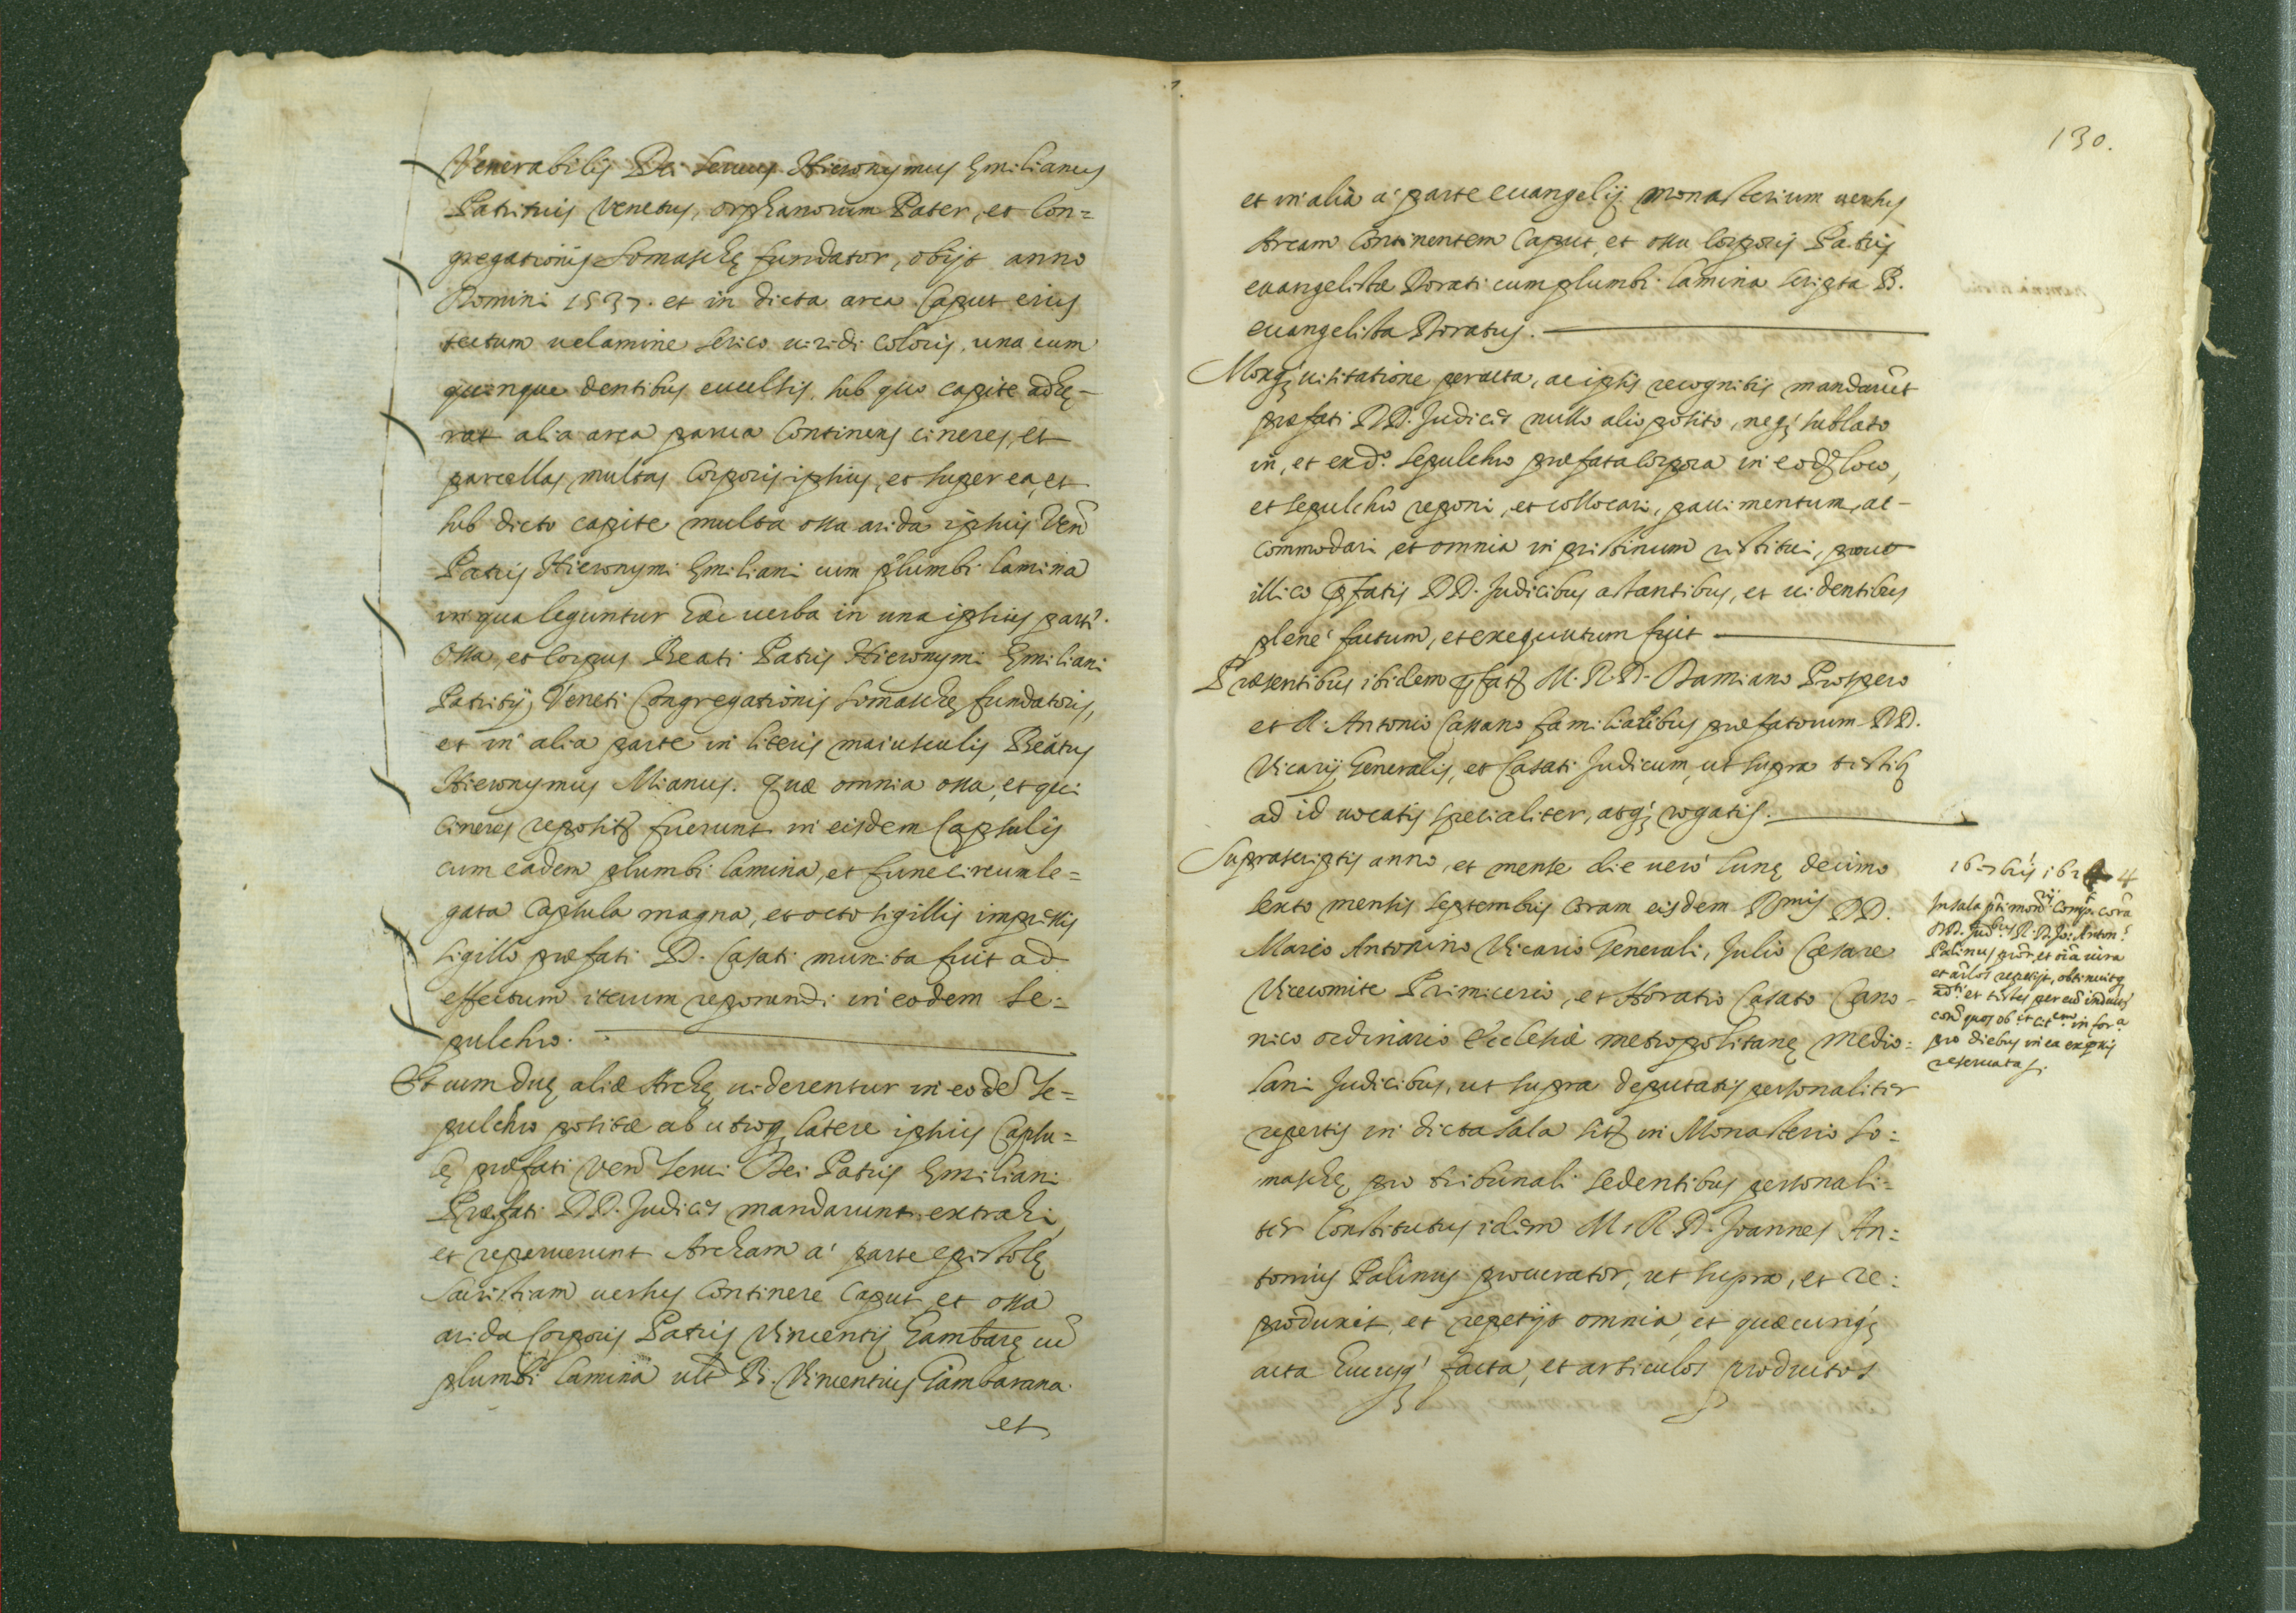 Venerabilis Dei Seruus Hieronymus Emilianus
Patritius Venetus, orphanorum Pater, et Con=
gregationis Somaschę fundator, obijt anno
Domini 1537. et in dicta arca Caput eius
tectum uelamine serico uiridi coloris, una cum
quinque dentibus euulsis, sub quo capite adhę-
rat alia arca parua Continens cineres, et
parcellas multas Corporis ipsius, et super ea, et
sub dicto capite multa ossa arida ipsius Ven
Patris Hieronymi Emiliani cum plumbi lamina
in qua leguntur hæc uerba in una ipsius parte.
Ossa, et Corpus Beati Patris Hieronymi Emiliani
Patritij Veneti Congregationis Somaschę fundatoris,
et in alia parte in literis maiusculis Beatus
Hieronymus Mianus. Quæ omnia ossa, et qui
Cineres repositę fuerunt in eisdem Capsulis
cum eadem plumbi lamina, et fune circumle=
gata Capsula magna, et octo sigillis impressis
sigillo præfati D. Casati munita fuit ad
effectum iterum reponendi in eodem se=
pulchro.
Et cum duę aliæ Archę uiderentur in eodē se=
pulchro positæ ab utroq; latere ipsius Capsu=
lę præfati Ven serui Dei Patris Emiliani
Præfati DD. Judices mandarunt extrahi,
et repererunt Archam à parte epistolę
Sacristiam uersus Continere Caput et ossa
arida Corporis Patris Vincentij Gambarę cū
plumbi lamina B. Vincentius Gambarana.
et
130.
et in alia à parte euangelij monasterium uersus
Arcam Continentem Caput, et ossa Corporis Patris
euangelistæ Dorati cum plumbi lamina scripta B.
euangelista Doratus.
Moxq; uisitatione peracta, ac ipsis recognitis mandarūt
præfati DD. Judices nullo alio posito, neq; sublato
in, et ex d.º sepulchro præfata Corpora in eodē loco,
et sepulchro reponi, et collocari, pauimentum ac-
commodari et omnia in pristinum restitui, prout
illico pfatis DD. Judicibus astantibus, et uidentibus
plenè factum, et exequutum fuit
Præsentibus ibidem pfatę M. R. D. Damiano Prospero
et D. Antonio Cassano familiaribus præfatorum DD.
Vicarij Generalis, et Casati Judicum, ut supra testibę
ad id uocatis specialiter, atq; rogatis.
Suprascriptis anno, et mense die uerò lunę decimo
sexto mensis septembris Coram eisdem Dmis DD.
Marco Antonino Vicario Generali, Julio Cæsare
Vicecomite Primicerio, et Horatio Casato Cano=
nico ordinario Ecclesiæ metropolitanę Medio=
lani Judicibus, ut supra deputatis personaliter
repertis in dicta sala sitę in Monasterio So=
maschę pro tribunali sedentibus personali=
ter Constitutus idem M. R. D. Joannes An=
tonius Palinus procurator, ut supra, et re=
produxit, et repetijt omnia, et quæcunq;
acta hucusq; facta, et articulos productos
16. 7bris 1624
In sala pti Comp. corā
DD. Jud. R. D. Jo: Anton.
Palinus et oīa iura
et repetijt, obtinuitq
et testes per eū inductos
quos in forª
pro diebus in ea expssis
reseruata